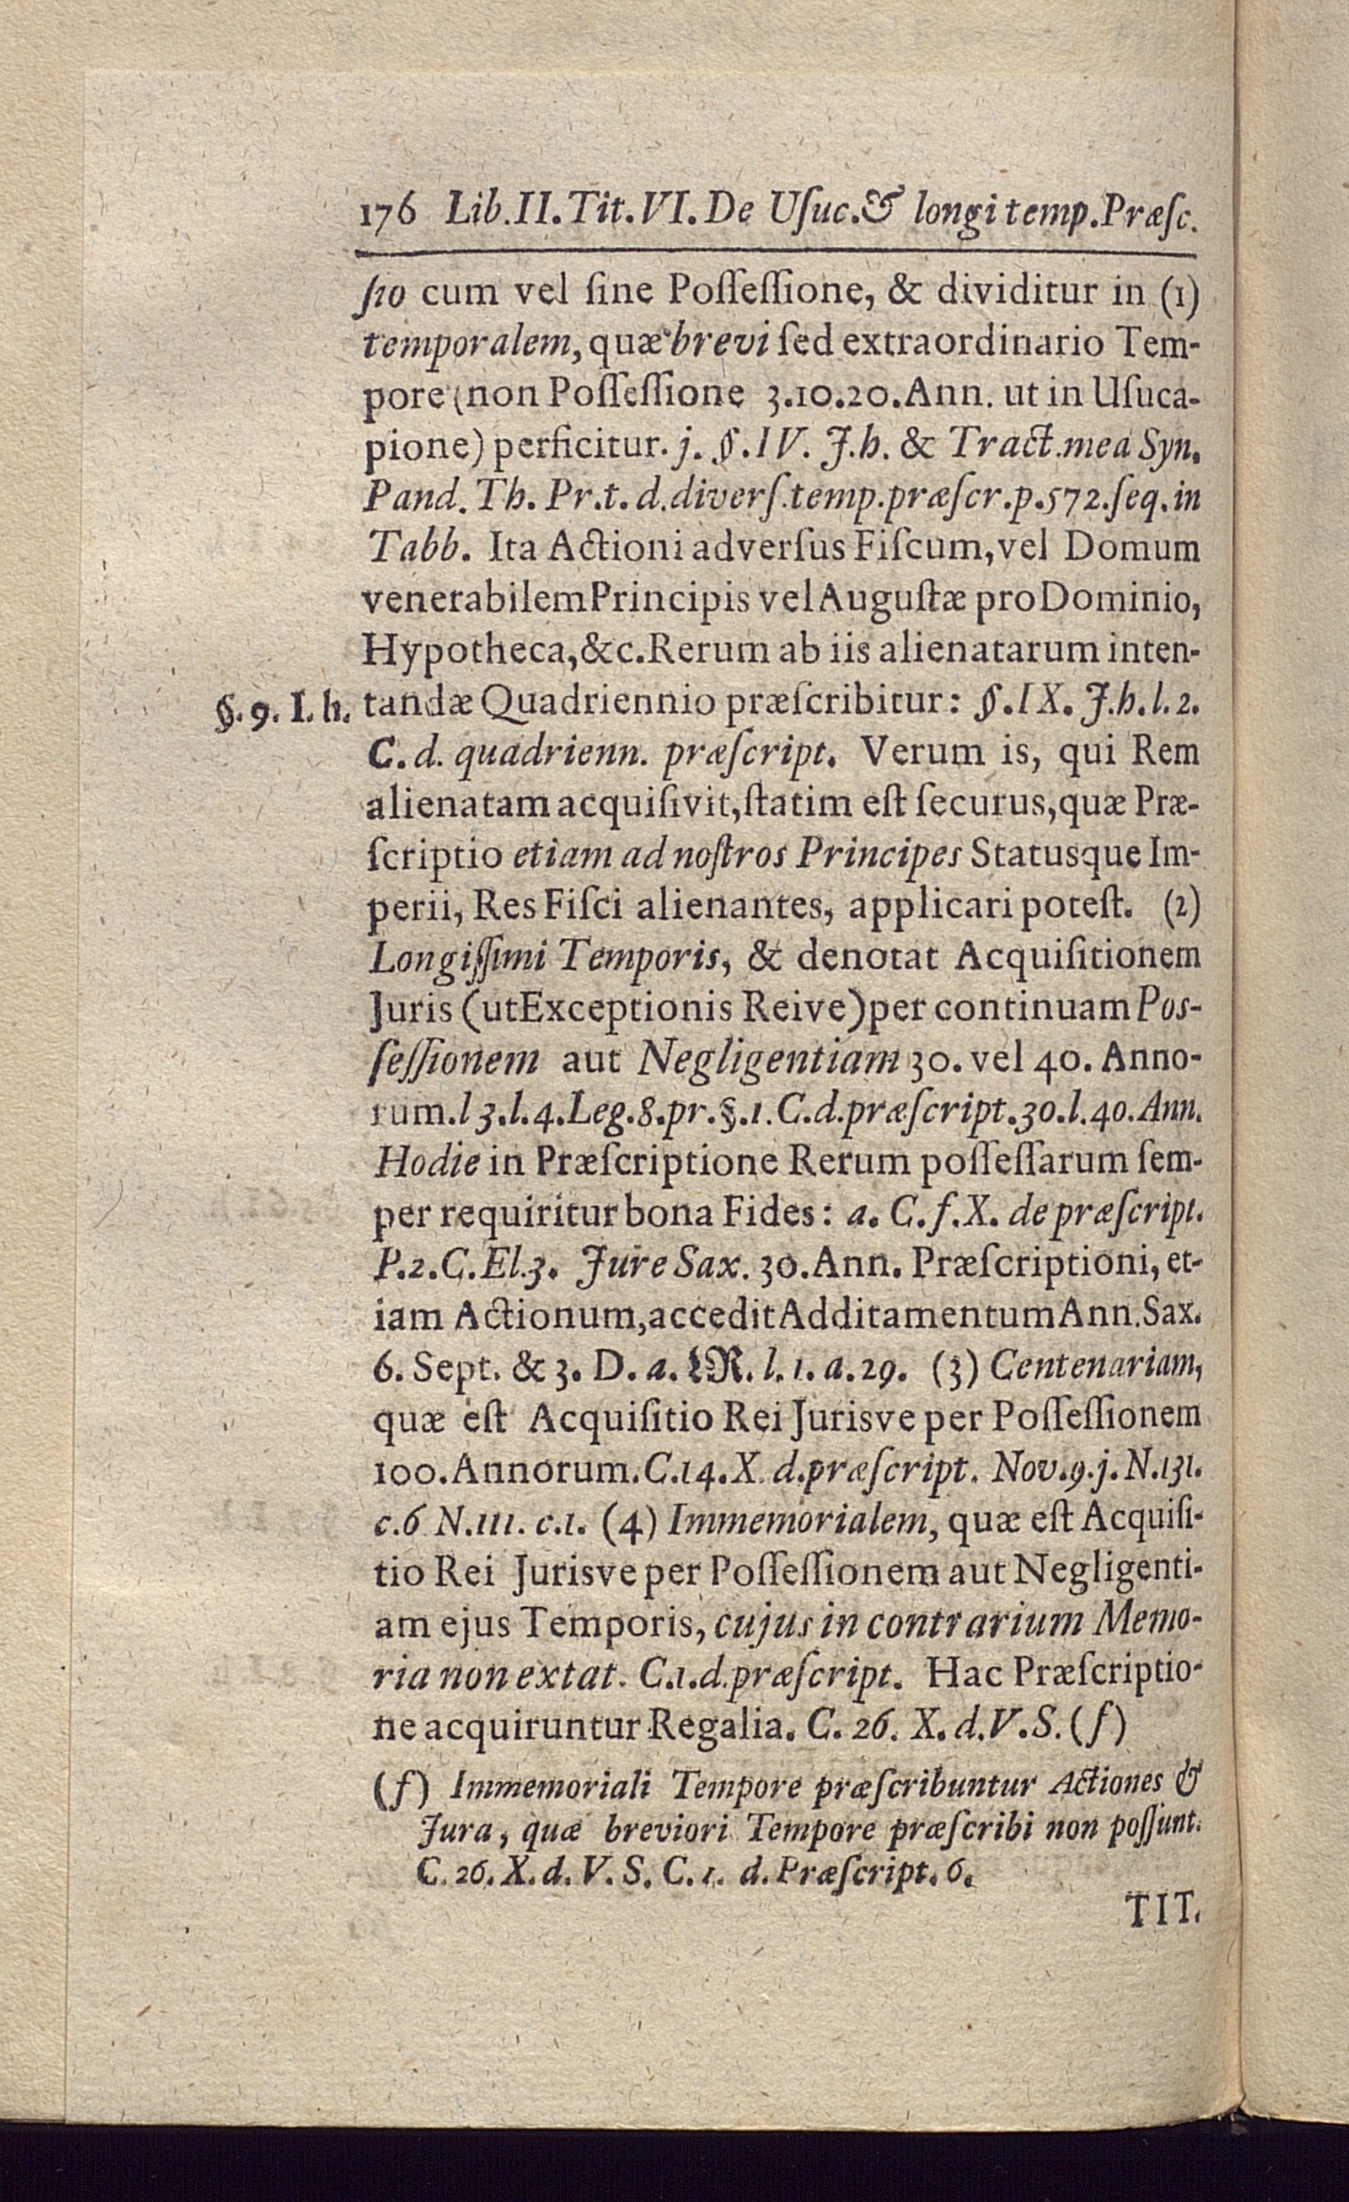 176 Lib.II.Tit.VI.De Uſuc.& longi temp.Præſc.
ſio cum vel ſine Poſſeſſione, & dividitur in (1)
temporalem, quæ brevi ſed extraordinario Tem-
pore (non Poſſeſſione 3.10.20.Ann. ut in Uſuca-
pione) perficitur. j. §.IV. J.h. & Tract.mea Syn.
Pand. Th. Pr.t.d.diverſ.temp.præſcr.p.572.ſeq.in
Tabb. Ita Actioni adverſus Fiſcum, vel Domum
venerabilem Principis vel Auguſtæ pro Dominio,
Hypotheca,&c.Rerum ab iis alienatarum inten-
§. 9. I. h. tandæ Quadriennio præſcribitur: §.IX. J.h.l.2.
C.d. quadrienn. præſcript. Verum is, qui Rem
alienatam acquiſivit,ſtatim eſt ſecurus,quæ Præ-
ſcriptio etiam ad noſtros Principes Statusque Im-
perii, Res Fiſci alienantes, applicari poteſt. (2)
Longiſſimi Temporis, & denotat Acquiſitionem
Juris (ut Exceptionis Reive) per continuam Pos-
ſeſſionem aut Negligentiam 30. vel 40. Anno-
rum.l 3.l.4.Leg.8.pr.§.1.C.d.præſcript.30.l.40.Ann.
Hodie in Præſcriptione Rerum poſſeſſarum ſem-
per requiritur bona Fides: a. C.f.X. de præſcript.
P.2.C.El.3. Jure Sax. 30.Ann. Præſcriptioni, et-
iam Actionum,accedit Additamentum Ann.Sax.
6. Sept. & 3. D. a. LR. l. 1. a. 29. (3) Centenariam,
quæ eſt Acquiſitio Rei Jurisve per Poſſeſſionem
100.Annorum.C.14.X.d.præſcript. Nov.9.j.N.131.
c.6 N.111. c.1. (4) Immemorialem, quæ eſt Acquiſi-
tio Rei Jurisve per Poſſeſſionem aut Negligenti-
am ejus Temporis, cujus in contrarium Memo-
ria non extat. C.1.d.præſcript. Hac Præſcriptio-
ne acquiruntur Regalia. C. 26. X. d.V.S. (f)
(f) Immemoriali Tempore præſcribuntur Actiones &
Jura, quæ breviori Tempore præſcribi non poſſunt.
C. 26. X. d. V. S. C. 1. d. Præſcript. 6.
TIT.